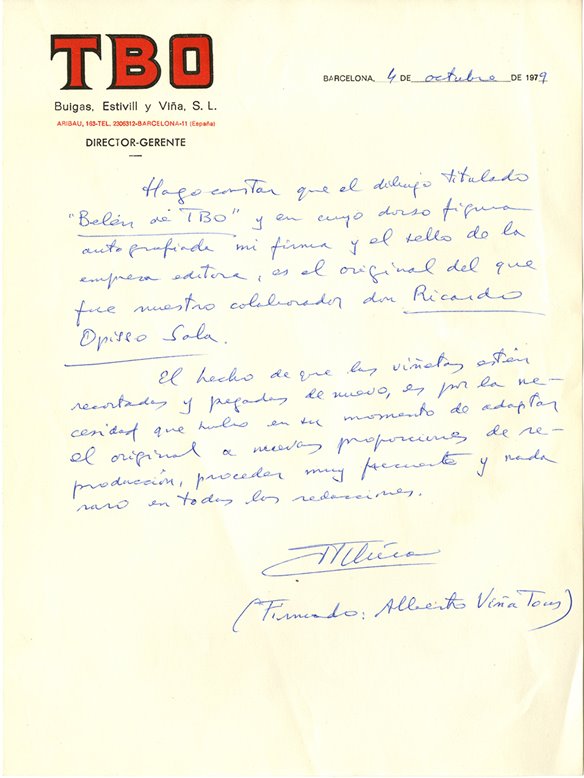 TBO
Buigas, Estivill y Viña, S. L.
ARIBAU, 163-TEL. 2306312-BARCELONA-11 (España)
DIRECTOR-GERENTE
BARCELONA, 4 DE octubre DE 1979
Hago constar que el dibujo titulado
"Belén de TBO" y en cuyo dorso figura
autografiada mi firma y el sello de la
empresa editora, es el original del que
fue nuestro colaborador don Ricardo
Opisso Sala.
El hecho de que las viñetas estén
recortadas y pegadas de nuevo, es por la ne-
cesidad que hubo en su momento de adaptar
el original a nuevas proporciones de re-
producción, proceder muy frecuente y nada
raro en todas las redacciones.
(Firmado: Alberto Viña Tous)